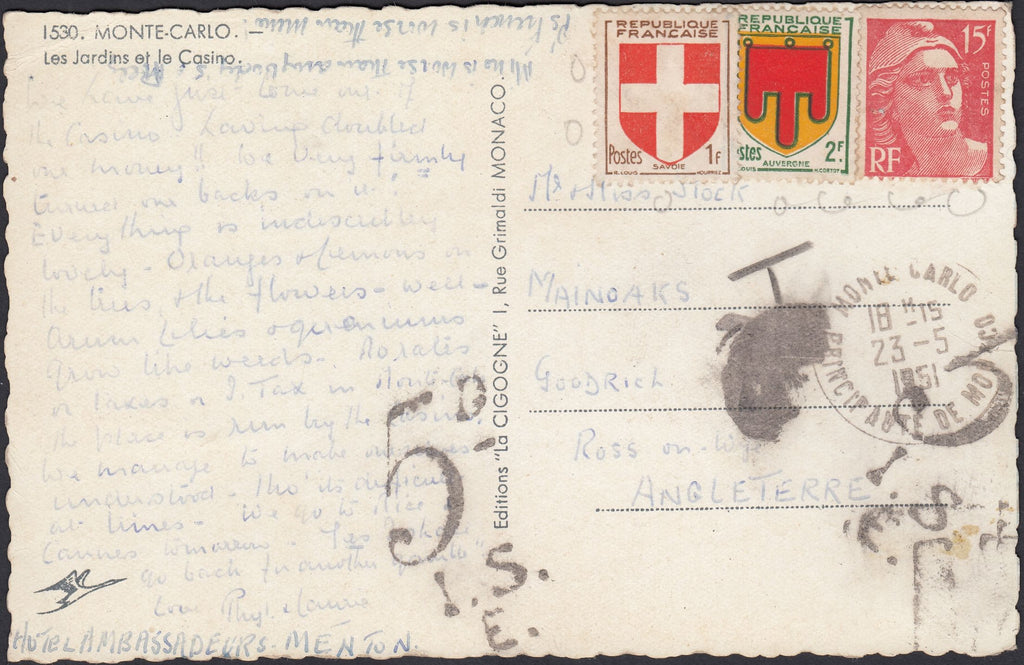 1530. MONTE-CARLO. —
Les Jardins et le Casino.
P's French is worse than mine.
Mine is worse than anybody's.
We have just come out of
the Casino having doubled
our money!! We very firmly
turned our backs on it!
Everything is indescribly
lovely - Oranges & Lemons on
the trees & the flowers - well -
Arum Lilies & geraniums
grow like weeds. No rates
or taxes or I. Tax in Monte Carlo
the place is run by the Casino.
We manage to make ourselves
understood - tho' its difficult
at times - We go to Nice &
Cannes tomorrow -
go back for another gamble"
Love Phyl
HOTEL AMBASSADEURS. MENTON.
Editions "La CIGOGNE" 1, Rue Grimaldi MONACO.
REPUBLIQUE
FRANÇAISE
Postes 1F
SAVOIE
R. LOUIS
REPUBLIQUE
FRANÇAISE
stes 2F
AUVERGNE
H. CORTOT
15F
POSTES
RF
Mr & Miss Stock
MAINOAKS
GOODRICH
ROSS on-Wye
ANGLETERRE
MONTE CARLO
18H-15
23-5
1951
PRINCIPAUTE DE MONACO
5D.
I.S.E.
T
I.S.E.